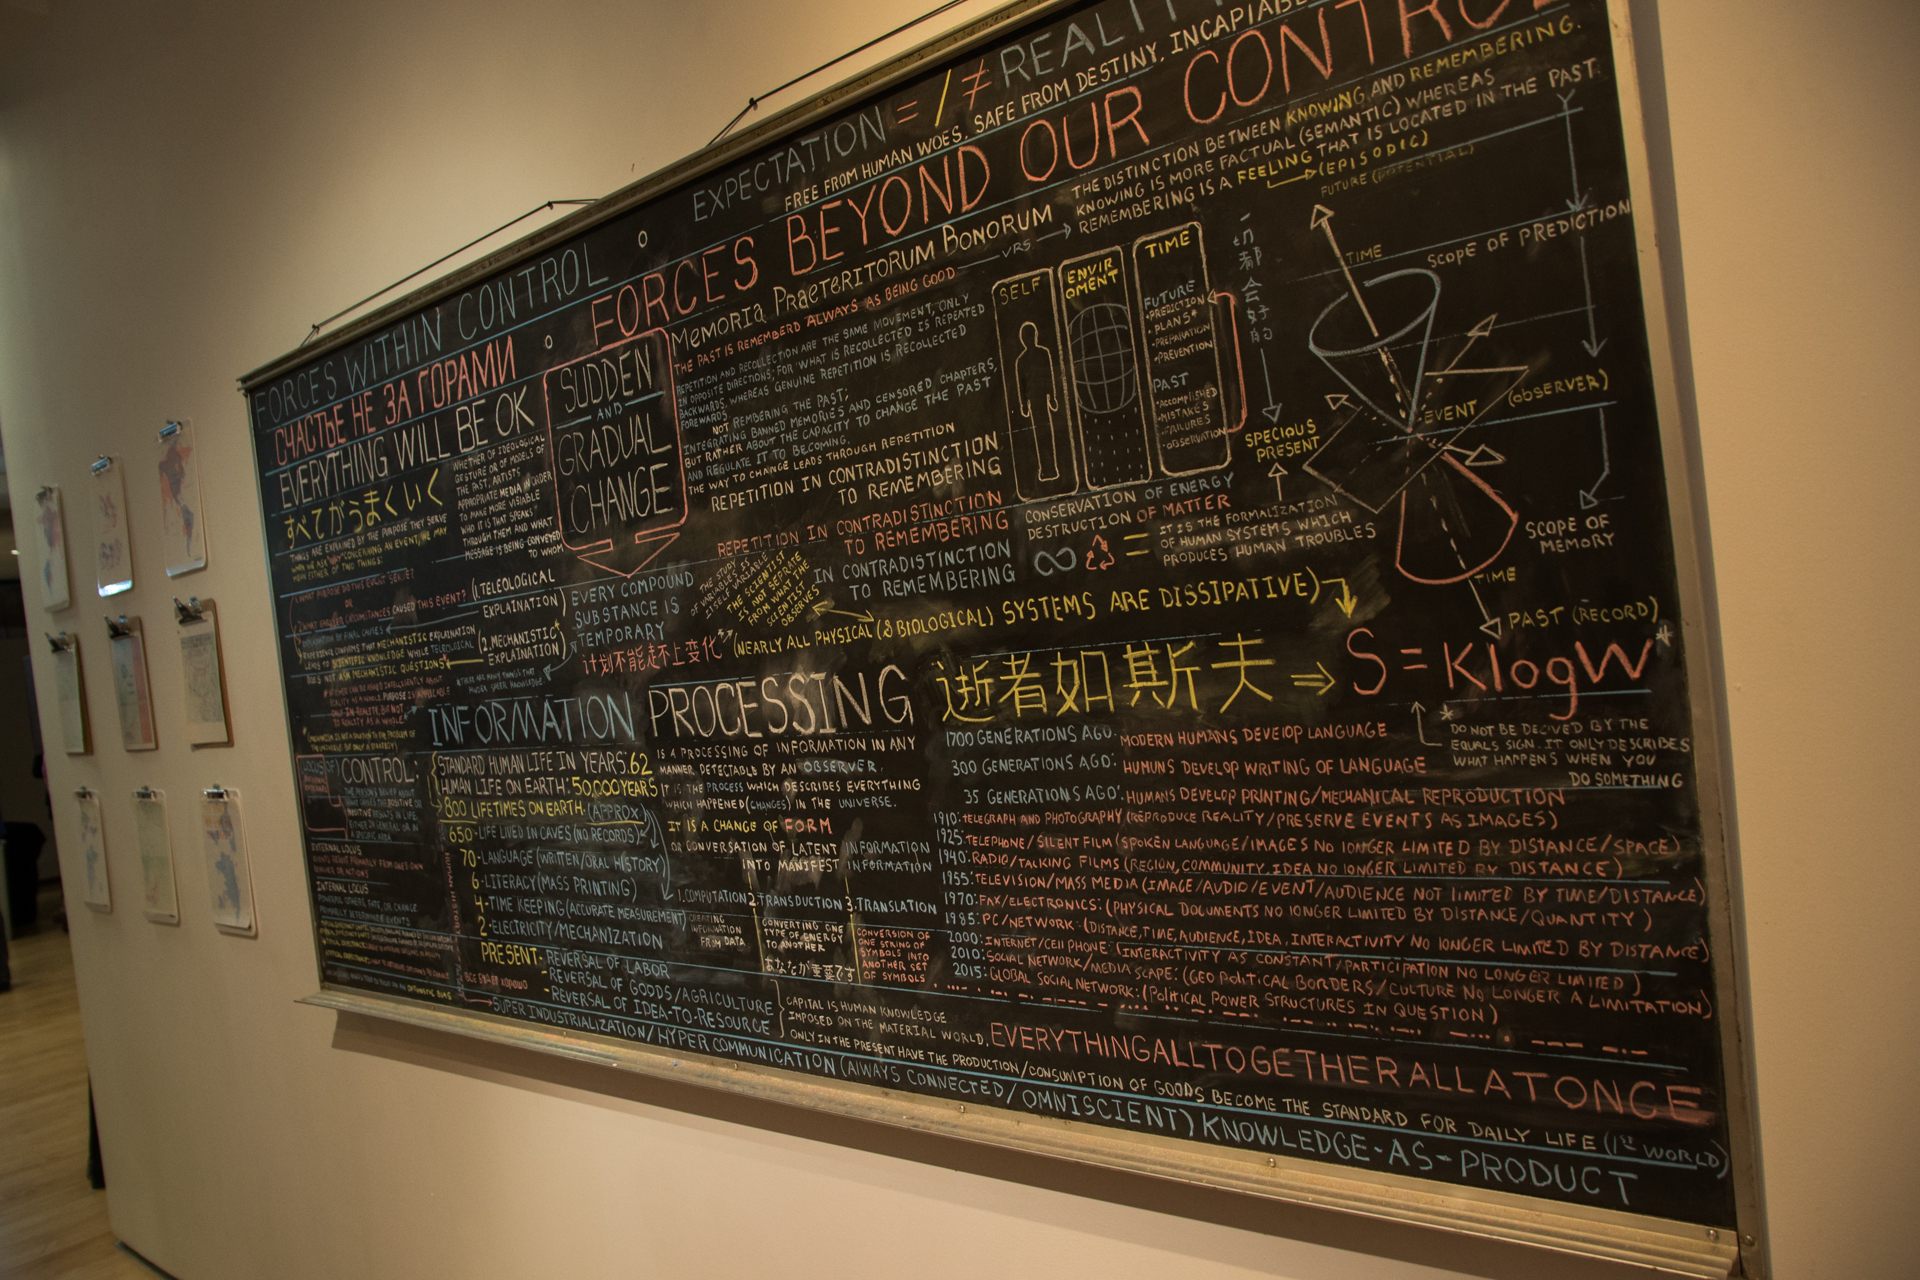 EXPECTATION = / ≠ REALIT
FREE FROM HUMAN WOES, SAFE FROM DESTINY, INCAPIABL
FORCES WITHIN CONTROL ∘ FORCES BEYOND OUR CONTRO
СЧАСТЬЕ НЕ ЗА ГОРАМИ
EVERYTHING WILL BE OK
すべてがうまくいく
THINGS ARE EXPLAINED BY THE PURPOSE THEY SERVE
WHEN WE ASK "WHY" CONCERNING AN EVENT, WE MAY
MEAN EITHER OF TWO THINGS:
1. WHAT PURPOSE DID THIS EVENT SERVE?
OR
CIRCUMSTANCES CAUSED THIS EVENT?
(1. TELEOLOGICAL
EXPLAINATION)
(2. MECHANISTIC*
EXPLAINATION)
WHETHER OF IDEOLOGICAL
GESTURE OR OF MODELS OF
THE PAST, ARTISTS
APPROPRIATE MEDIA IN ORDER
TO MAKE MORE VISIBLE
WHO IT IS THAT SPEAKS
THROUGH THEM AND WHAT
MESSAGE IS BEING CONVEYED
TO WHOM
SUDDEN
AND
GRADUAL
CHANGE
EVERY COMPOUND
SUBSTANCE IS
TEMPORARY
计划不能赶不上变化
Memoria Praeteritorum Bonorum
THE PAST IS REMEMBERD ALWAYS AS BEING GOOD
VRS
REPETITION AND RECOLLECTION ARE THE SAME MOVEMENT, ONLY
IN OPPOSITE DIRECTIONS; FOR WHAT IS RECOLLECTED IS REPEATED
BACKWARDS, WHEREAS GENUINE REPETITION IS RECOLLECTED
FOREWARDS.
NOT REMBERING THE PAST,
INTEGRATING BANNED MEMORIES AND CENSORED CHAPTERS,
BUT RATHER ABOUT THE CAPACITY TO CHANGE THE PAST
AND REGULATE IT TO BECOMING.
THE WAY TO CHANGE LEADS THROUGH REPETITION
REPETITION IN CONTRADISTINCTION
TO REMEMBERING
REPETITION IN CONTRADISTINCTION
TO REMEMBERING
IN CONTRADISTINCTION
TO REMEMBERING
THE STUDY
OF VARIABLES
ITSELF VARIABLE
THE SCIENTIST
IS NOT SEPERATE
FROM WHAT THE
SCIENTIST
OBSERVES
(NEARLY ALL PHYSICAL (& BIOLOGICAL) SYSTEMS ARE DISSIPATIVE)
THE DISTINCTION BETWEEN KNOWING AND REMEMBERING.
KNOWING IS MORE FACTUAL (SEMANTIC) WHEREAS
REMEMBERING IS A FEELING THAT IS LOCATED IN THE PAST
(EPISODIC)
FUTURE (POTENTIAL)
SELF
ENVIR
OMENT
TIME
FUTURE
•PREDICTION
•PLANS
•PREPARATION
•PREVENTION
PAST
•ACCOMPLISHED
•MISTAKES
•FAILURES
•OBSERVATION
一切都会好的
SPECIOUS
PRESENT
TIME
SCOPE OF PREDICTION
EVENT
(OBSERVER)
SCOPE OF
MEMORY
TIME
PAST (RECORD)
CONSERVATION OF ENERGY
DESTRUCTION OF MATTER
∞ ♺ =
IT IS THE FORMALIZATION
OF HUMAN SYSTEMS WHICH
PRODUCES HUMAN TROUBLES
逝者如斯夫 ⇒ S = KlogW*
* DO NOT BE DECIVED BY THE
EQUALS SIGN. IT ONLY DESCRIBES
WHAT HAPPENS WHEN YOU
DO SOMETHING
CONTROL:
EXTERNAL LOCUS
INTERNAL LOCUS
INFORMATION PROCESSING
STANDARD HUMAN LIFE IN YEARS: 62
HUMAN LIFE ON EARTH: 50,000 YEARS
800 LIFETIMES ON EARTH. (APPROX)
650 - LIFE LIVED IN CAVES (NO RECORDS)
70 - LANGUAGE (WRITTEN/ORAL HISTORY)
6 - LITERACY (MASS PRINTING)
4 - TIME KEEPING (ACCURATE MEASUREMENT)
2 - ELECTRICITY/MECHANIZATION
PRESENT - REVERSAL OF LABOR
- REVERSAL OF GOODS/AGRICULTURE
- REVERSAL OF IDEA-TO-RESOURCE
ВСЕ БУДЕТ ХОРОШО
IS A PROCESSING OF INFORMATION IN ANY
MANNER DETECTABLE BY AN OBSERVER.
IT IS THE PROCESS WHICH DESCRIBES EVERYTHING
WHICH HAPPENED (CHANGES) IN THE UNIVERSE.
IT IS A CHANGE OF FORM
OR CONVERSATION OF LATENT INFORMATION
INTO MANIFEST INFORMATION
1. COMPUTATION 2. TRANSDUCTION 3. TRANSLATION
CREATING
INFORMATION
FROM DATA
CONVERTING ONE
TYPE OF ENERGY
TO ANOTHER
CONVERSION OF
ONE STRING OF
SYMBOLS INTO
ANOTHER SET
OF SYMBOLS
あなたが重要です
1700 GENERATIONS AGO: MODERN HUMANS DEVELOP LANGUAGE
300 GENERATIONS AGO: HUMUNS DEVELOP WRITING OF LANGUAGE
35 GENERATIONS AGO: HUMANS DEVELOP PRINTING/MECHANICAL REPRODUCTION
1910: TELEGRAPH AND PHOTOGRAPHY (REPRODUCE REALITY/PRESERVE EVENTS AS IMAGES)
1925: TELEPHONE/SILENT FILM (SPOKEN LANGUAGE/IMAGES NO LONGER LIMITED BY DISTANCE/SPACE)
1940: RADIO/TALKING FILMS (REGION, COMMUNITY, IDEA NO LONGER LIMITED BY DISTANCE)
1955: TELEVISION/MASS MEDIA (IMAGE/AUDIO/EVENT/AUDIENCE NOT LIMITED BY TIME/DISTANCE)
1970: FAX/ELECTRONICS: (PHYSICAL DOCUMENTS NO LONGER LIMITED BY DISTANCE/QUANTITY)
1985: PC/NETWORK: (DISTANCE, TIME, AUDIENCE, IDEA, INTERACTIVITY NO LONGER LIMITED BY DISTANCE)
2000: INTERNET/CELL PHONE: (INTERACTIVITY AS CONSTANT/PARTICIPATION NO LONGER LIMITED)
2010: SOCIAL NETWORK/MEDIA SCAPE: (GEO POLITICAL BORDERS/CULTURE NO LONGER A LIMITATION)
2015: GLOBAL SOCIAL NETWORK: (POLITICAL POWER STRUCTURES IN QUESTION)
CAPITAL IS HUMAN KNOWLEDGE
IMPOSED ON THE MATERIAL WORLD.
EVERYTHINGALLTOGETHERALLATONCE
ONLY IN THE PRESENT HAVE THE PRODUCTION/CONSUMPTION OF GOODS BECOME THE STANDARD FOR DAILY LIFE (1ST WORLD)
SUPER INDUSTRIALIZATION/HYPER COMMUNICATION (ALWAYS CONNECTED/OMNISCIENT) KNOWLEDGE-AS-PRODUCT